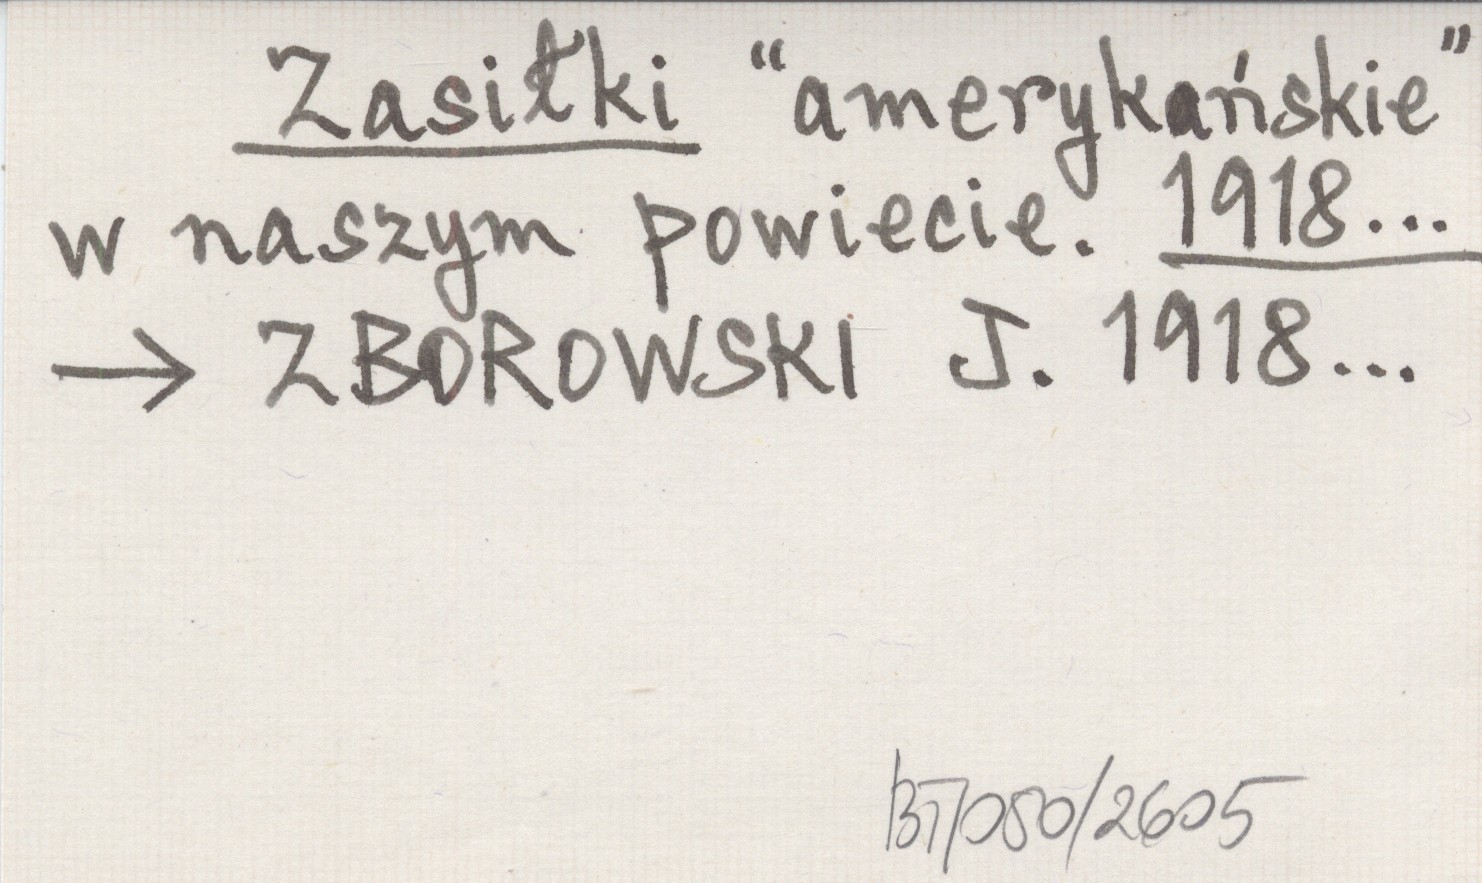 Zasiłki "amerykańskie"
w naszym powiecie. 1918...
→ ZBOROWSKI J. 1918...
BT/080/2605